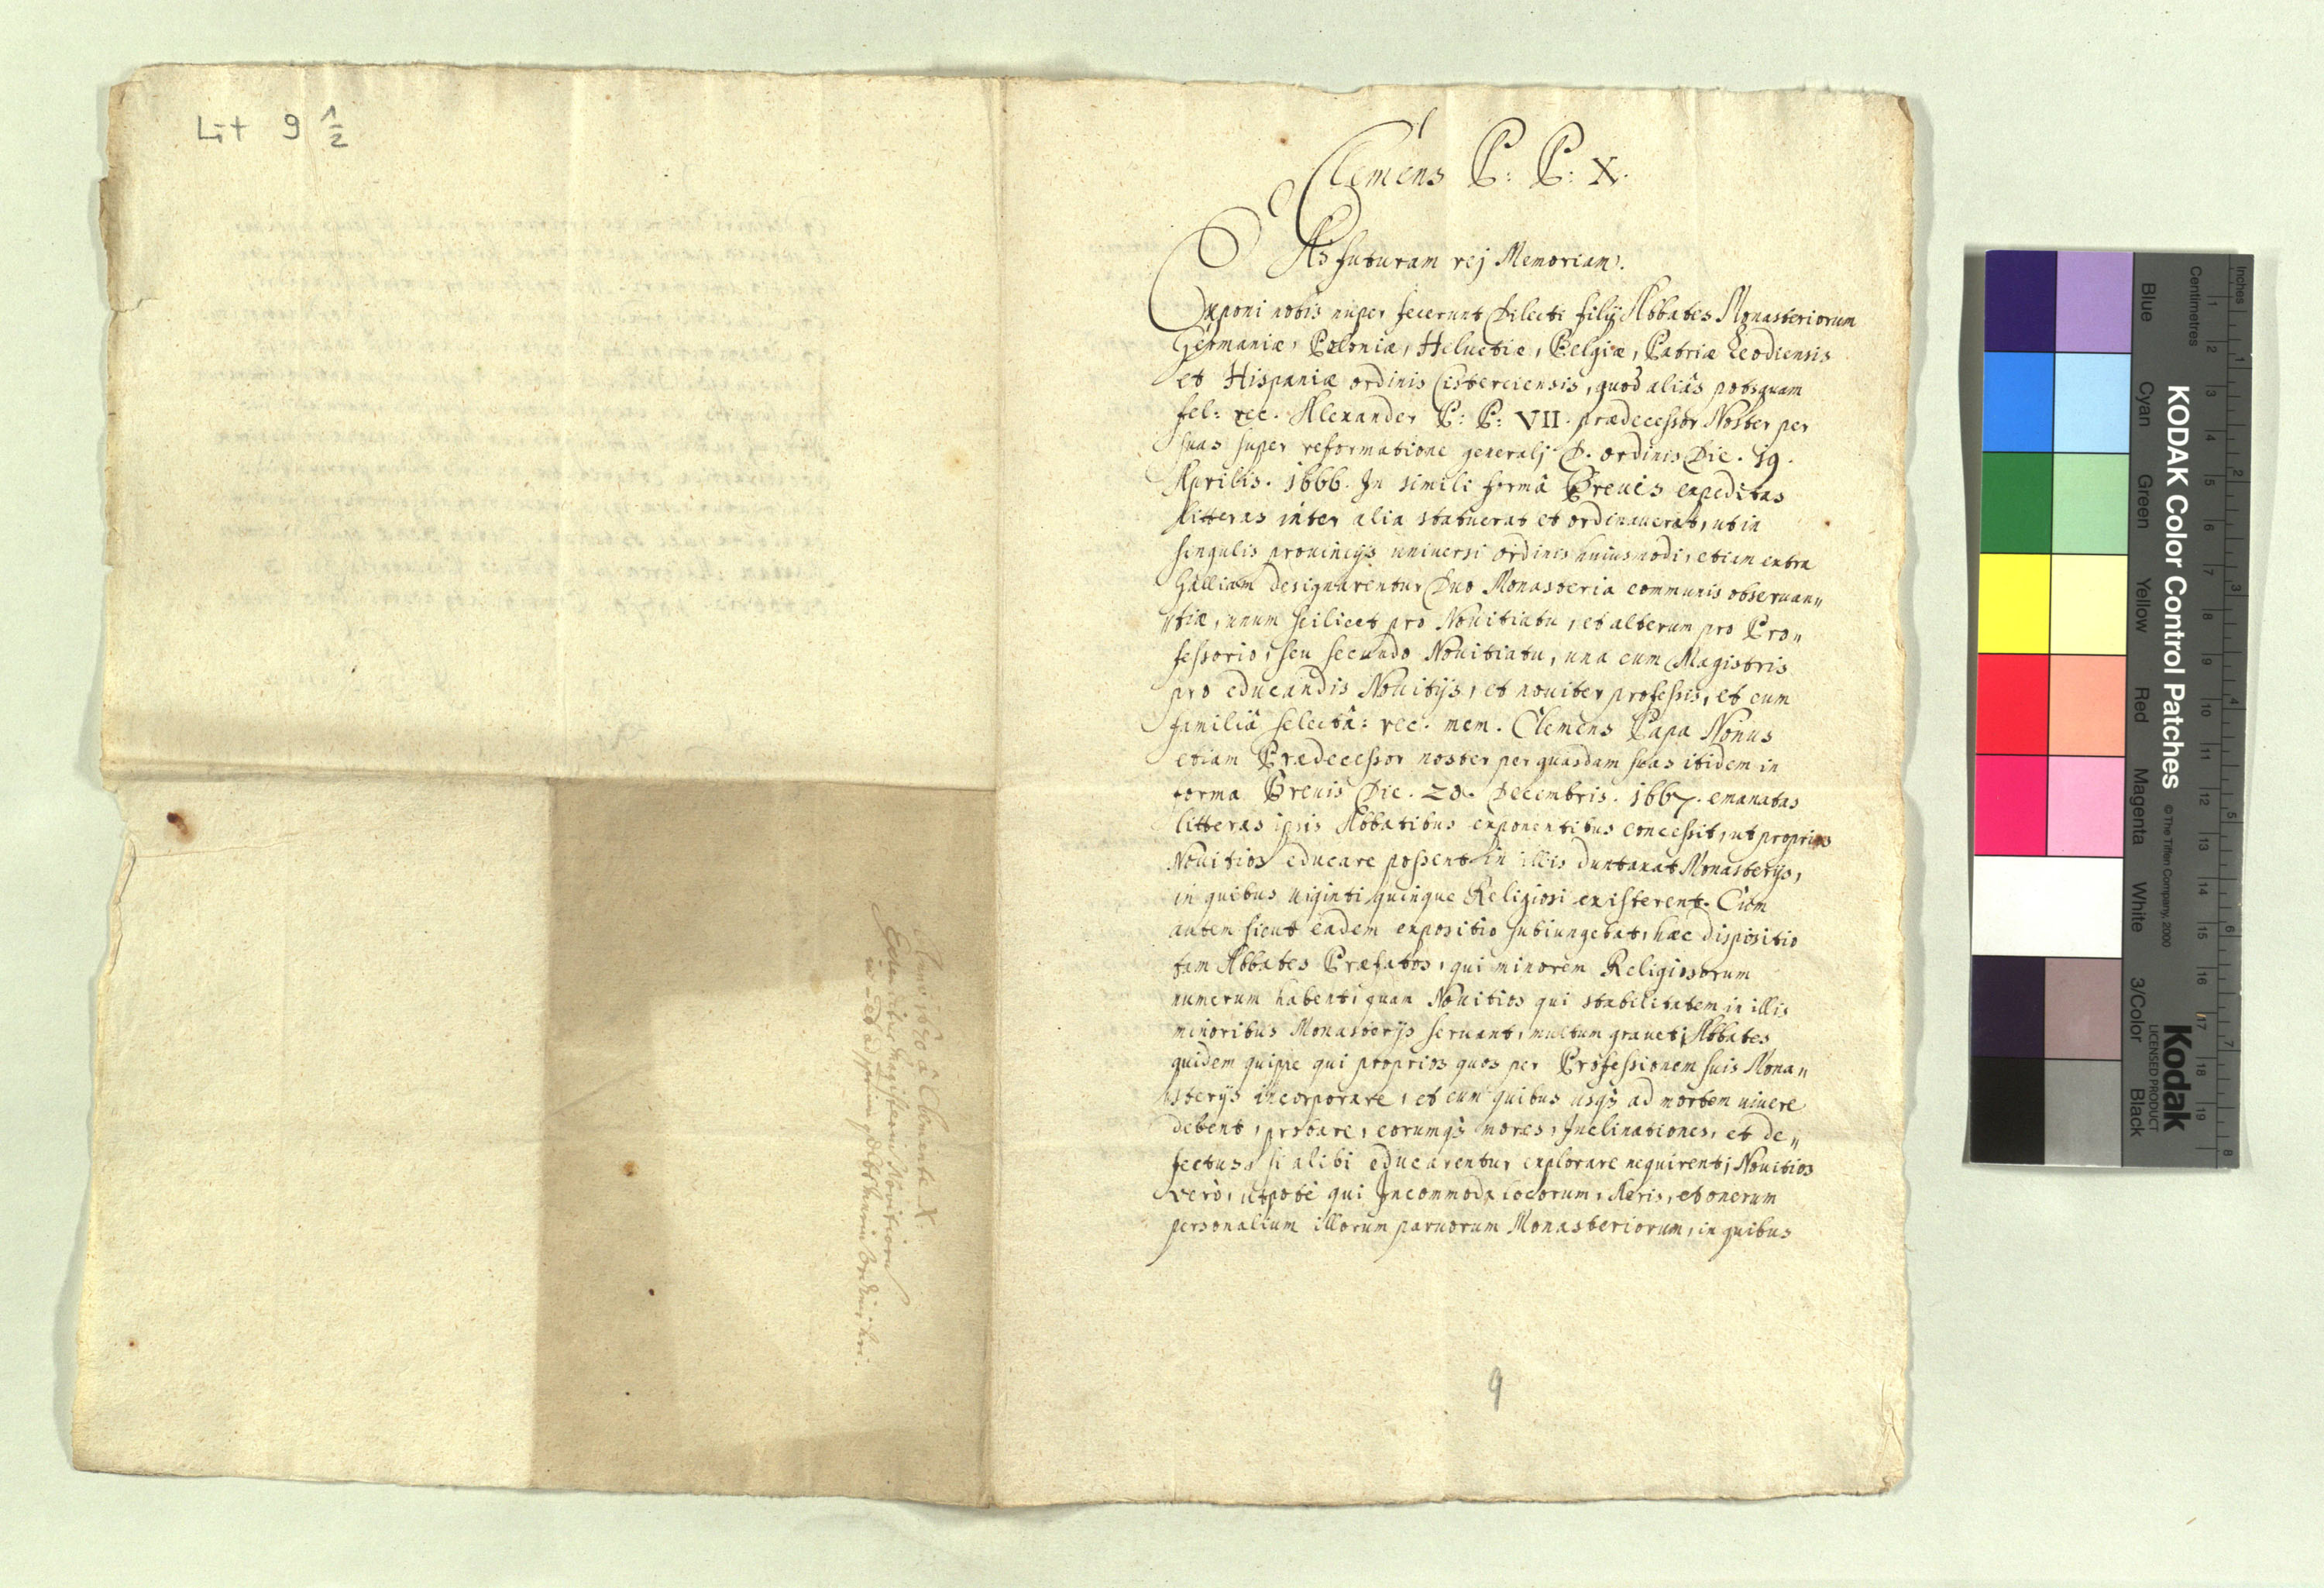 Lit 9 1/2
Clemens P: P: X.
Ad futuram rej Memoriam.
Exponi nobis nuper fecerunt Dilecti filij Abbates Monasteriorum
Germaniæ, Poloniæ, Helvetiæ, Belgiæ, Patriæ Leodiensis
et Hispaniæ ordinis Cisterciensis, quod aliàs postquam
fel: rec. Alexander P: P: VII. prædecessor Noster per
suas super reformatione generalj D. ordinis Die. 19.
Aprilis. 1666. In simili formâ Breuis expeditas
litteras inter alia statuerat et ordinauerat, ut in
singulis prouincijs uniuersi ordinis huiusmodi, etiam extra
Galliam designarentur Duo Monasteria communis obseruan„
„tiæ, unum scilicet pro Nouitiatu, et alterum pro Pro„
fessorio, seu secundo Nouitiatu, una cum Magistris
pro educandis Nouitijs, et nouiter professis, et cum
familiâ selectâ: rec. mem. Clemens Papa Nonus
etiam Prædecessor noster per quasdam suas itidem in
forma Breuis Die. 20. Decembris. 1667. emanatas
litteras ipsis Abbatibus exponentibus concessit, ut proprios
Nouitios educare possent in illis duntaxat Monasterijs,
in quibus uiginti quinque Religiosi existerent. Cùm
autem sicut eadem expositio subiungebat, hæc dispositio
tam Abbates Præfatos, qui minorem Religiosorum
numerum habent, quam Nouitios qui stabilitatem in illis
minoribus Monasterijs seruant, multum grauet; Abbates
quidem quippe qui proprios quos per Professionem suis Mona„
sterijs incorporare, et cum quibus usq̃ ad mortem uiuere
debent, probare, eorumq̃ mores, Inclinationes, et de„
fectus, si alibi educarentur explorare nequirent; Nouitios
verò, utpotè qui Incommoda locorum, Aeris, et onerum
personalium illorum paruorum Monasteriorum, in quibus
9
Anno 1670 â Clemente X.